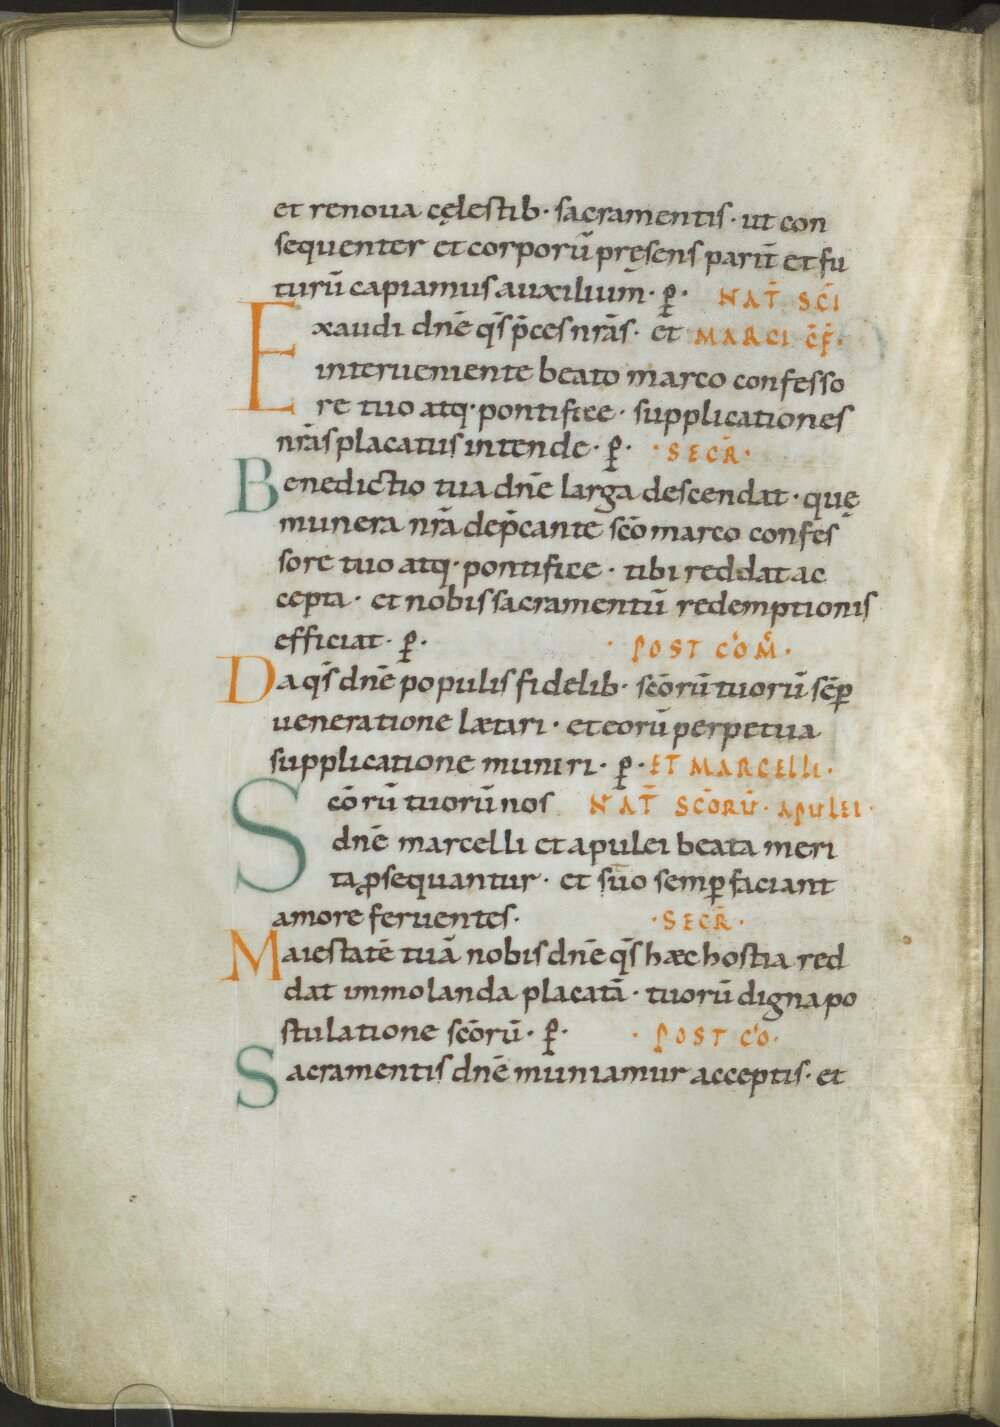 et renoua cęlestib· sacramentis· ut con
sequenter et corporū pręsens pariť et fu
turū capiamus auxilium̄· ꝑ· NAT̄ SC̄I
Exaudi dn̄e qs̄ p̄ces nr̄as· et MARCI C̄F̄·
interueniente beato marco confesso
re tuo atq·pontifice· supplicationes
nr̄as placatus intende· ꝑ· ·SECR̄·
Benedictio tua dn̄e larga descendat· quę
munera nr̄a dep̄cante sc̄o marco confes
sore tuo atq·pontifice· tibi reddat ac
cepta· et nobis sacramentū redemptionis
efficiat· ꝑ· ·POST COM̄·
Da qs̄ dn̄e populis fidelib· sc̄orū tuorū sēꝑ
ueneratione lætari· et eorū perpetua
supplicatione muniri· ꝑ· ET MARCELLI·
Sc̄orū tuorū nos NAT̄ SC̄ORŪ· APULEI·
dn̄e marcelli et apulei beata meri
ta ꝓsequantur· et suo semꝑ faciant
amore feruentes· ·SECR̄·
Maiestatē tuā nobis dn̄e qs̄ hæc hostia red
dat immolanda placatā· tuorū digna po
stulatione sc̄orū· ꝑ· ·POST CO·
Sacramentis dn̄e muniamur acceptis· et